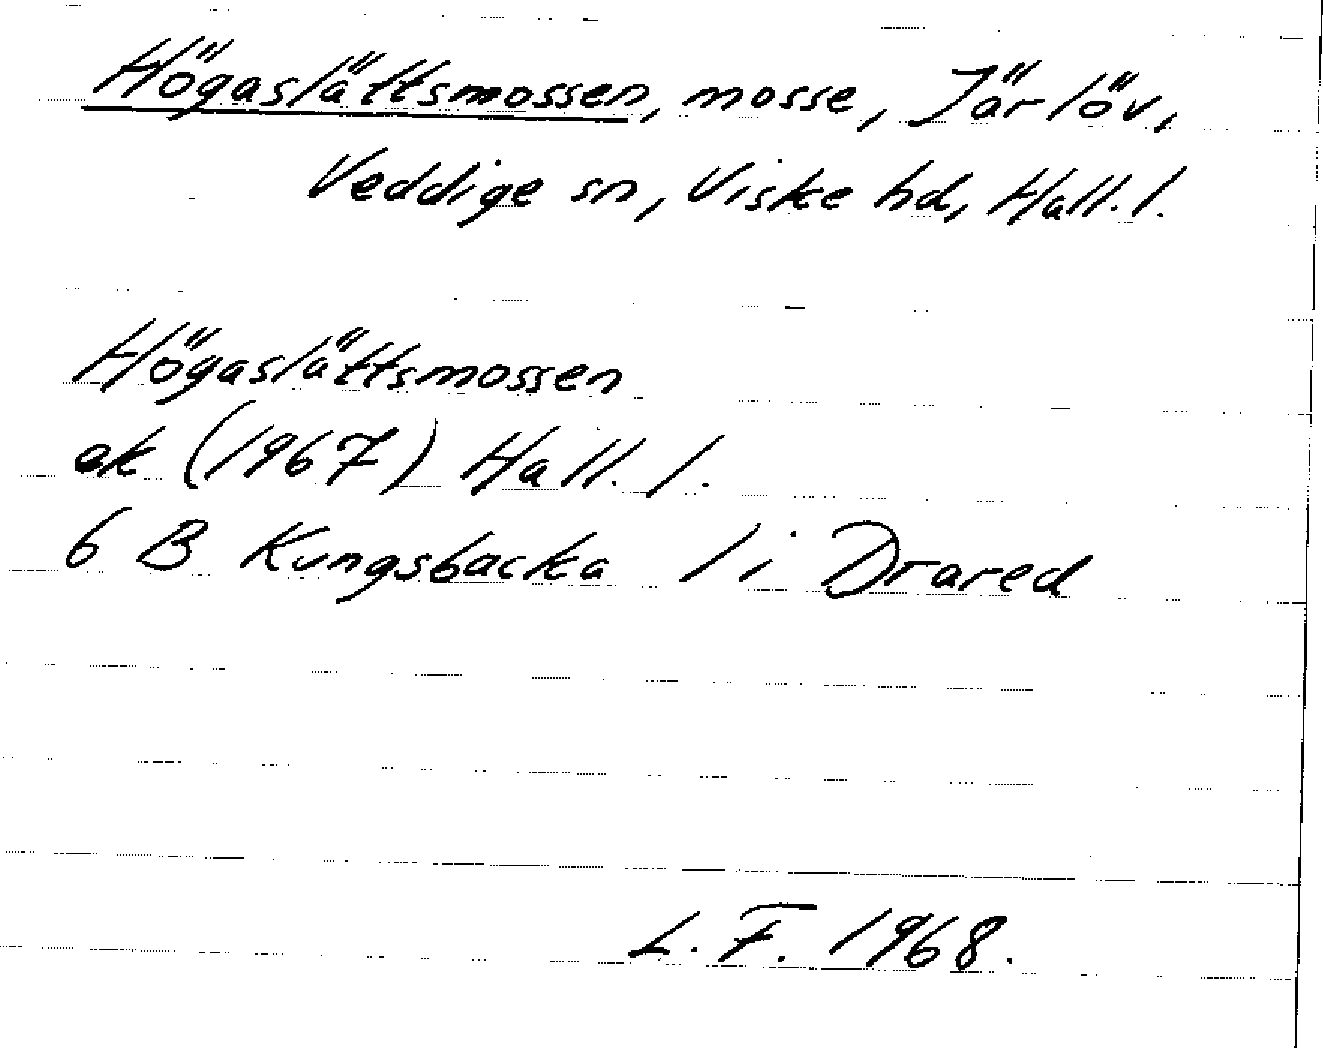 Högaslättsmossen, mosse, Järlöv,
Veddige sn, Viske hd, Hall. l.
Högaslättsmossen
ek (1967) Hall. l.
6 B Kungsbacka 1 i Drared
L. F. 1968.